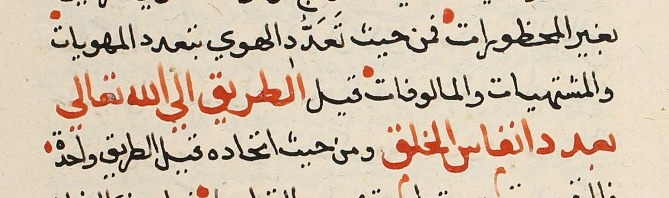 بغير المحظورات فمن حيث تعدَّد الهوي بتعدد المهويات
والمشتهيات والمالوفات قيل الطريق الي الله تعالي
بعدد انفاس الخلق ومن حيث اتحاده قيل الطريق واحدة